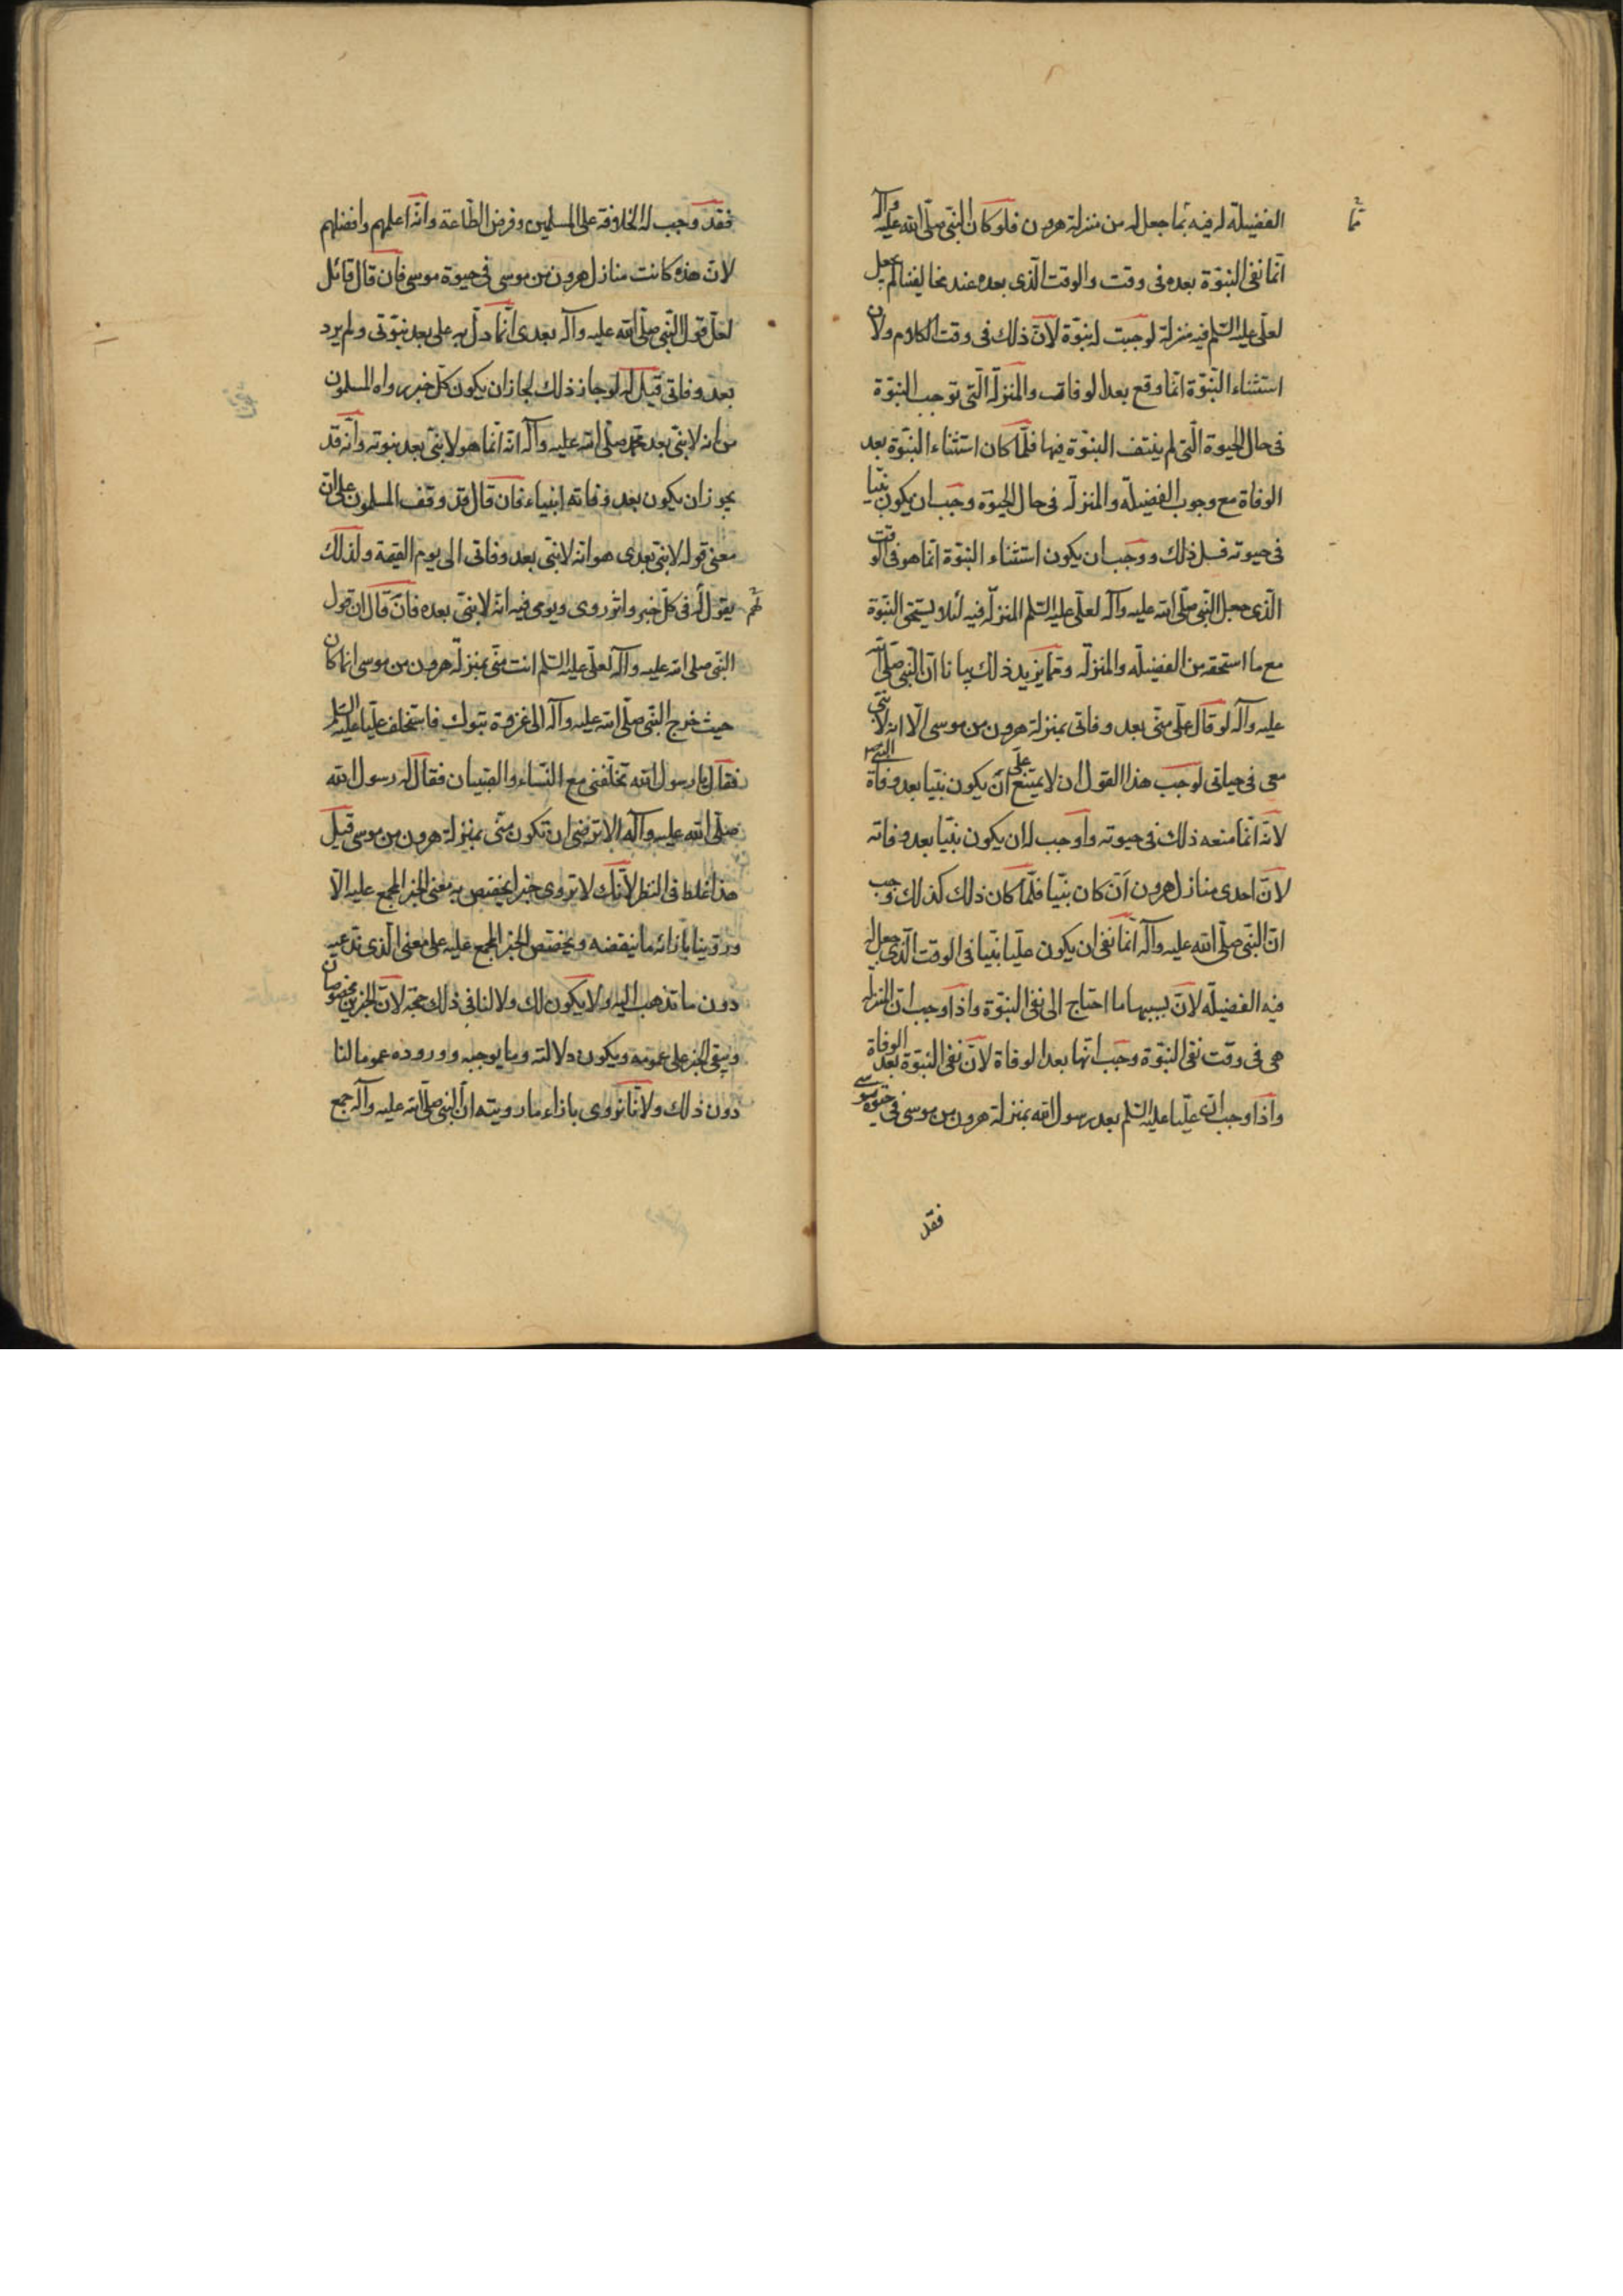 الفضيلة له فيه بما جعل له من منزلة هرون فلو كان النبي صلى الله عليه وآله
انما نفى النبوة بعده فى وقت والوقت الذى بعده عند مخالفينا لم يجعل
لعلى عليه السلم فيه منزلة لوجبت له نبوة لان ذلك فى وقت الكلام ولان
استثناء النبوة انما وقع بعد الوفاة والمنزلة التى توجب النبوة
فى حال الحيوة التى لم ينتف النبوة فيها فلما كان استثناء النبوة بعد
الوفاة مع وجوب الفضيلة والمنزلة فى حال الحيوة وجب ان يكون نبيا
فى حيوته ففسد ذلك ووجب ان يكون استثناء النبوة انما هو فى الوقت
الذى جعل النبى صلى الله عليه وآله لعلى عليه السلم المنزلة فيه لئلا يستحق النبوة
مع ما استحقه من الفضيلة والمنزلة ومما يزيد ذلك بيانا ان النبى صلى الله
عليه وآله لو قال على منى بعد وفاتى بمنزلة هرون من موسى الا انه لا نبى
معى فى حياتى لوجب هذا القول ان لا يمتنع على ان يكون نبيا بعد وفاة النبى
لانه انما منعه ذلك فى حيوته واوجب له ان يكون نبيا بعد وفاته
لان احدى منازل هرون ان كان نبيا فلما كان ذلك كذلك وجب
ان النبى صلى الله عليه وآله انما نفى ان يكون عليا نبيا فى الوقت الذى جعل له
فيه الفضيلة لان بسببها ما احتاج الى نفى النبوة واذا وجب ان المنزلة
هى فى وقت نفى النبوة وجب انها بعد الوفاة لان نفى النبوة بعد الوفاة
واذا وجب ان عليا عليه السلم بعد رسول الله بمنزلة هرون من موسى فى حيوة موسى
فقد
فقد وجب له الخلافة على المسلمين وفرض الطاعة وانه اعلمهم وافضلهم
لان هذه كانت منازل هرون من موسى فى حيوة موسى فان قال قائل
لعل قول النبى صلى الله عليه وآله بعدى انما دل به على بعد نبوتى ولم يرد
بعد وفاتى قيل له لو جاز ذلك لجاز ان يكون كل خبر رواه المسلمون
من انه لا نبى بعد محمد صلى الله عليه وآله انه انما هو لا نبى بعد نبوته وانه قد
يجوز ان يكون بعد وفاته انبياء فان قال قد وقف المسلمون على ان
معنى قوله لا نبى بعدى هو انه لا نبى بعد وفاتى الى يوم القيمة ولذلك
يقول لهم فى كل خبر واثر روى ويومى فيه انه لا نبى بعده فان قال ان قول
النبى صلى الله عليه وآله لعلى عليه السلم انت منى بمنزلة هرون من موسى انما كان
حيث خرج النبى صلى الله عليه وآله الى غزوة تبوك فاستخلف عليا عليه السلم
فقال يا رسول الله تخلفنى مع النساء والصبيان فقال له رسول الله
صلى الله عليه وآله الا ترضى ان تكون منى بمنزلة هرون من موسى قيل
هذا غلط فى النظر لانك لا تروى خبرا يختص به معنى الخبر المجمع عليه الا
وروينا بازائه ما ينقضه ويخصص الخبر المجمع عليه على معنى الذى ندعيه
دون ما تذهب اليه ولا يكون لك ولا لنا فى ذلك حجة لان الخبرين مخصوصان
ويبقى الخبر على عمومه ويكون دلالته وما يوجبه ووروده عموما لنا
دون ذلك ولانا نروى بازاء ما رويته ان النبى صلى الله عليه وآله جمع